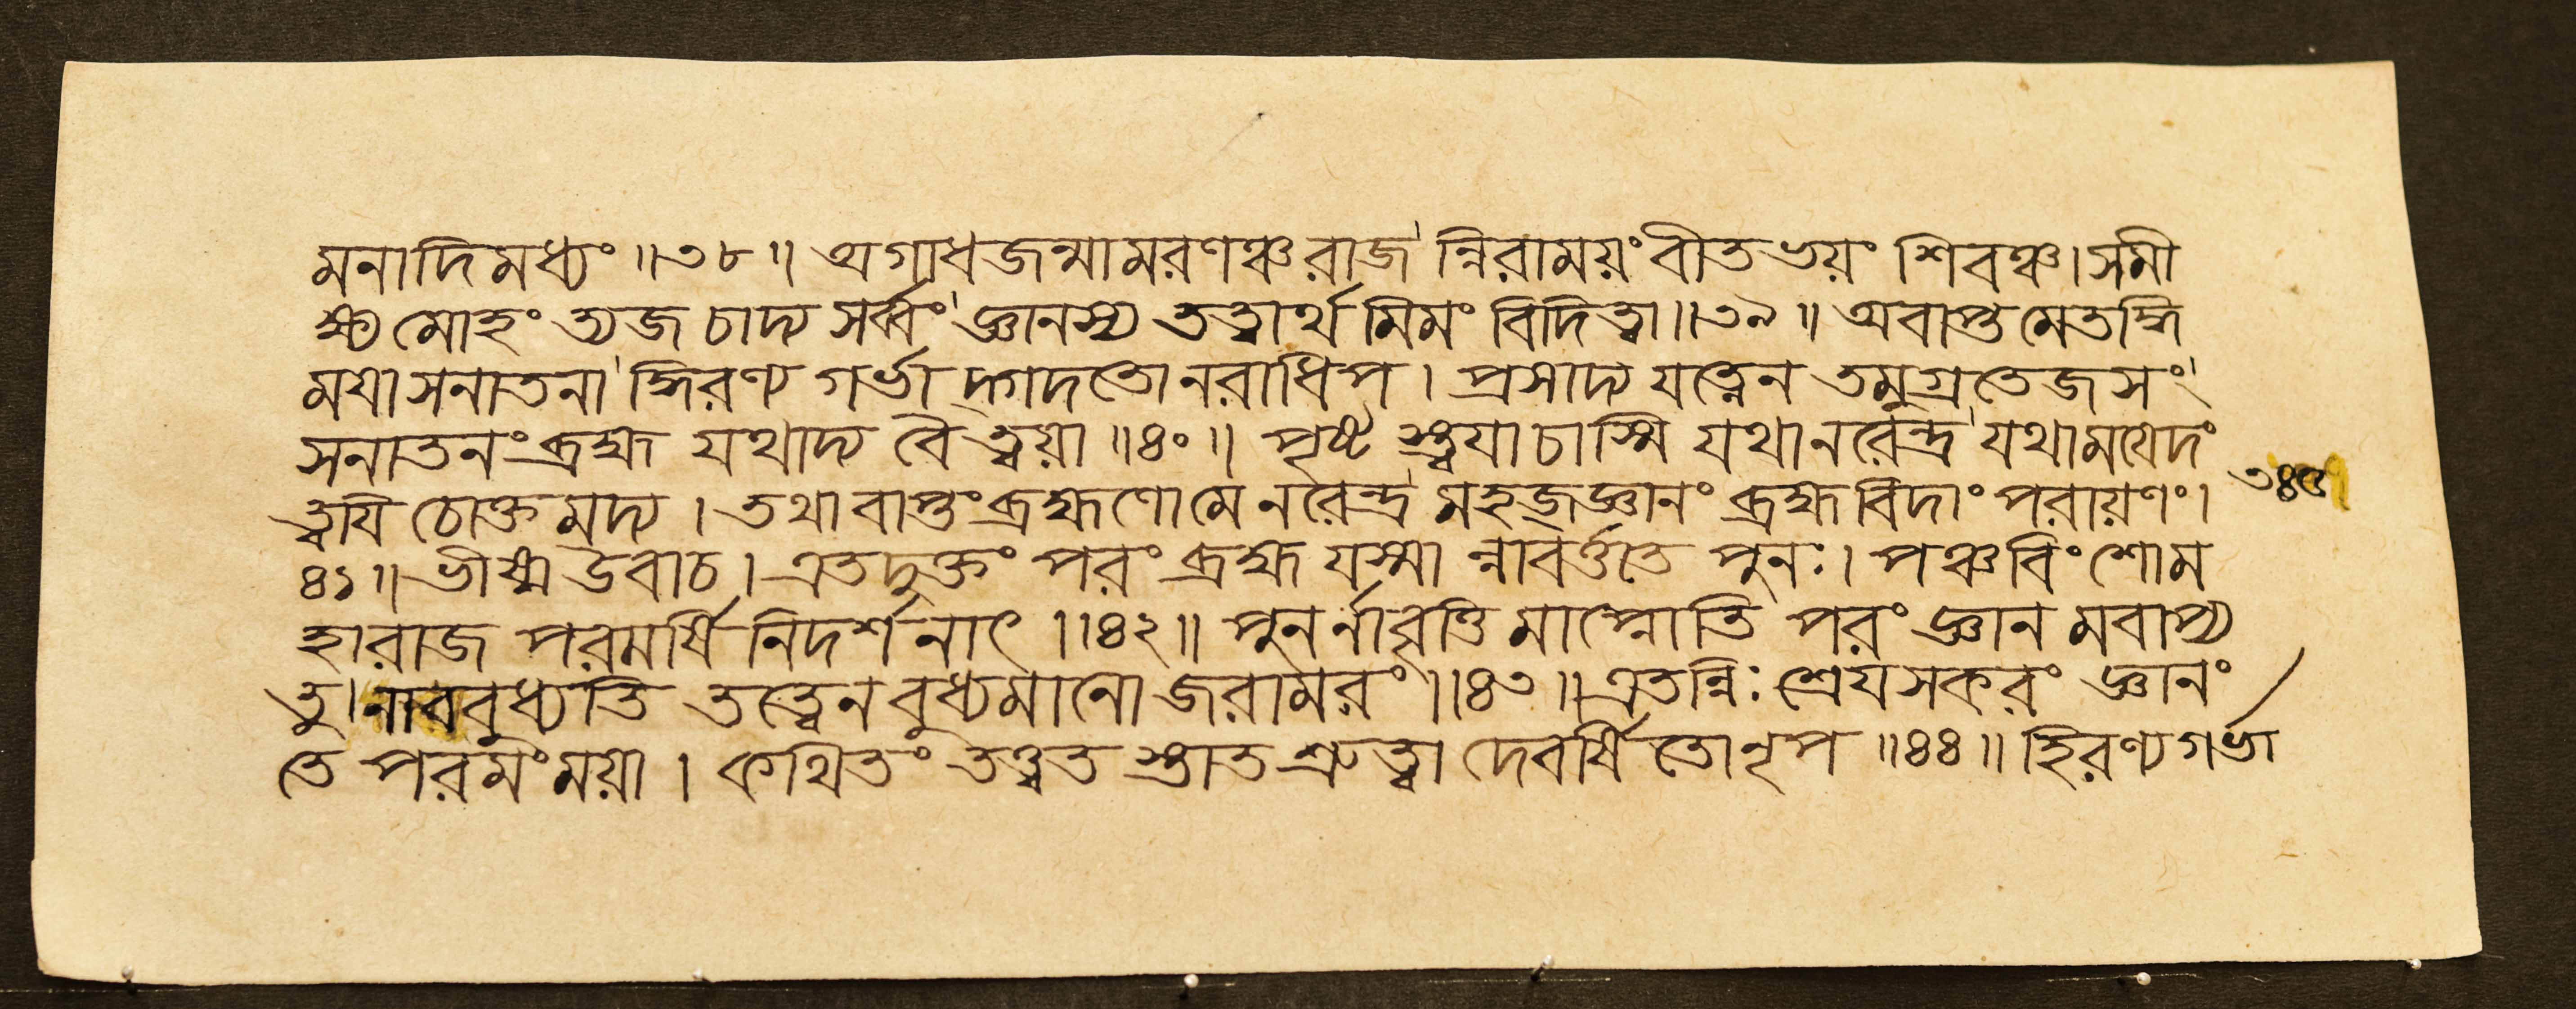 মনাদিমধ্যং ॥৩৮॥ অগাধজন্মামরণঞ্চরাজ ন্নিরাময়ংবীতভয়ং শিবঞ্চ।সমী
ক্ষ্য মোহং ত্যজ চাদ্য সর্ব্বং জ্ঞানস্য তত্বার্থ মিমং বিদিত্বা॥৩৯॥ অবাপ্ত মেতদ্ধি
ময়া সনাতনা দ্ধিরণ্য গর্ভা দ্গদতোনরাধিপ। প্রসাদ্য যত্নেন তমুগ্রতেজসং
সনাতনংব্রহ্ম যথাদ্য বৈ ত্বয়া ॥৪০॥ পৃষ্ট স্ত্বয়াচাস্মি যথানরেন্দ্র যথাময়েদং
ত্বয়ি চোক্তমদ্য। তথাবাপ্তংব্রহ্মণোমেনরেন্দ্র মহজ্জ্ঞানং ব্রহ্মবিদাং পরায়ণং।
৩৪৫
৪১॥ ভীষ্ম উবাচ। এতদুক্তং পরং ব্রহ্ম যস্মা ন্নাবর্ত্ততে পুনঃ। পঞ্চবিংশোম
হারাজ পরমর্ষি নিদর্শনাৎ ॥৪২॥ পুনর্নাবৃত্তি মাপ্নোতি পরং জ্ঞান মবাপ্য
তু। নাববুধ্যতি তত্ত্বেন বুধ্যমানোজরামরং ॥৪৩॥ এতন্নিঃ শ্রেয়সকরং জ্ঞানং
তে পরমংময়া। কথিতং তত্ত্বত স্তাত শ্রুত্বা দেবর্ষি তোনৃপ ॥৪৪॥ হিরণ্যগর্ভা